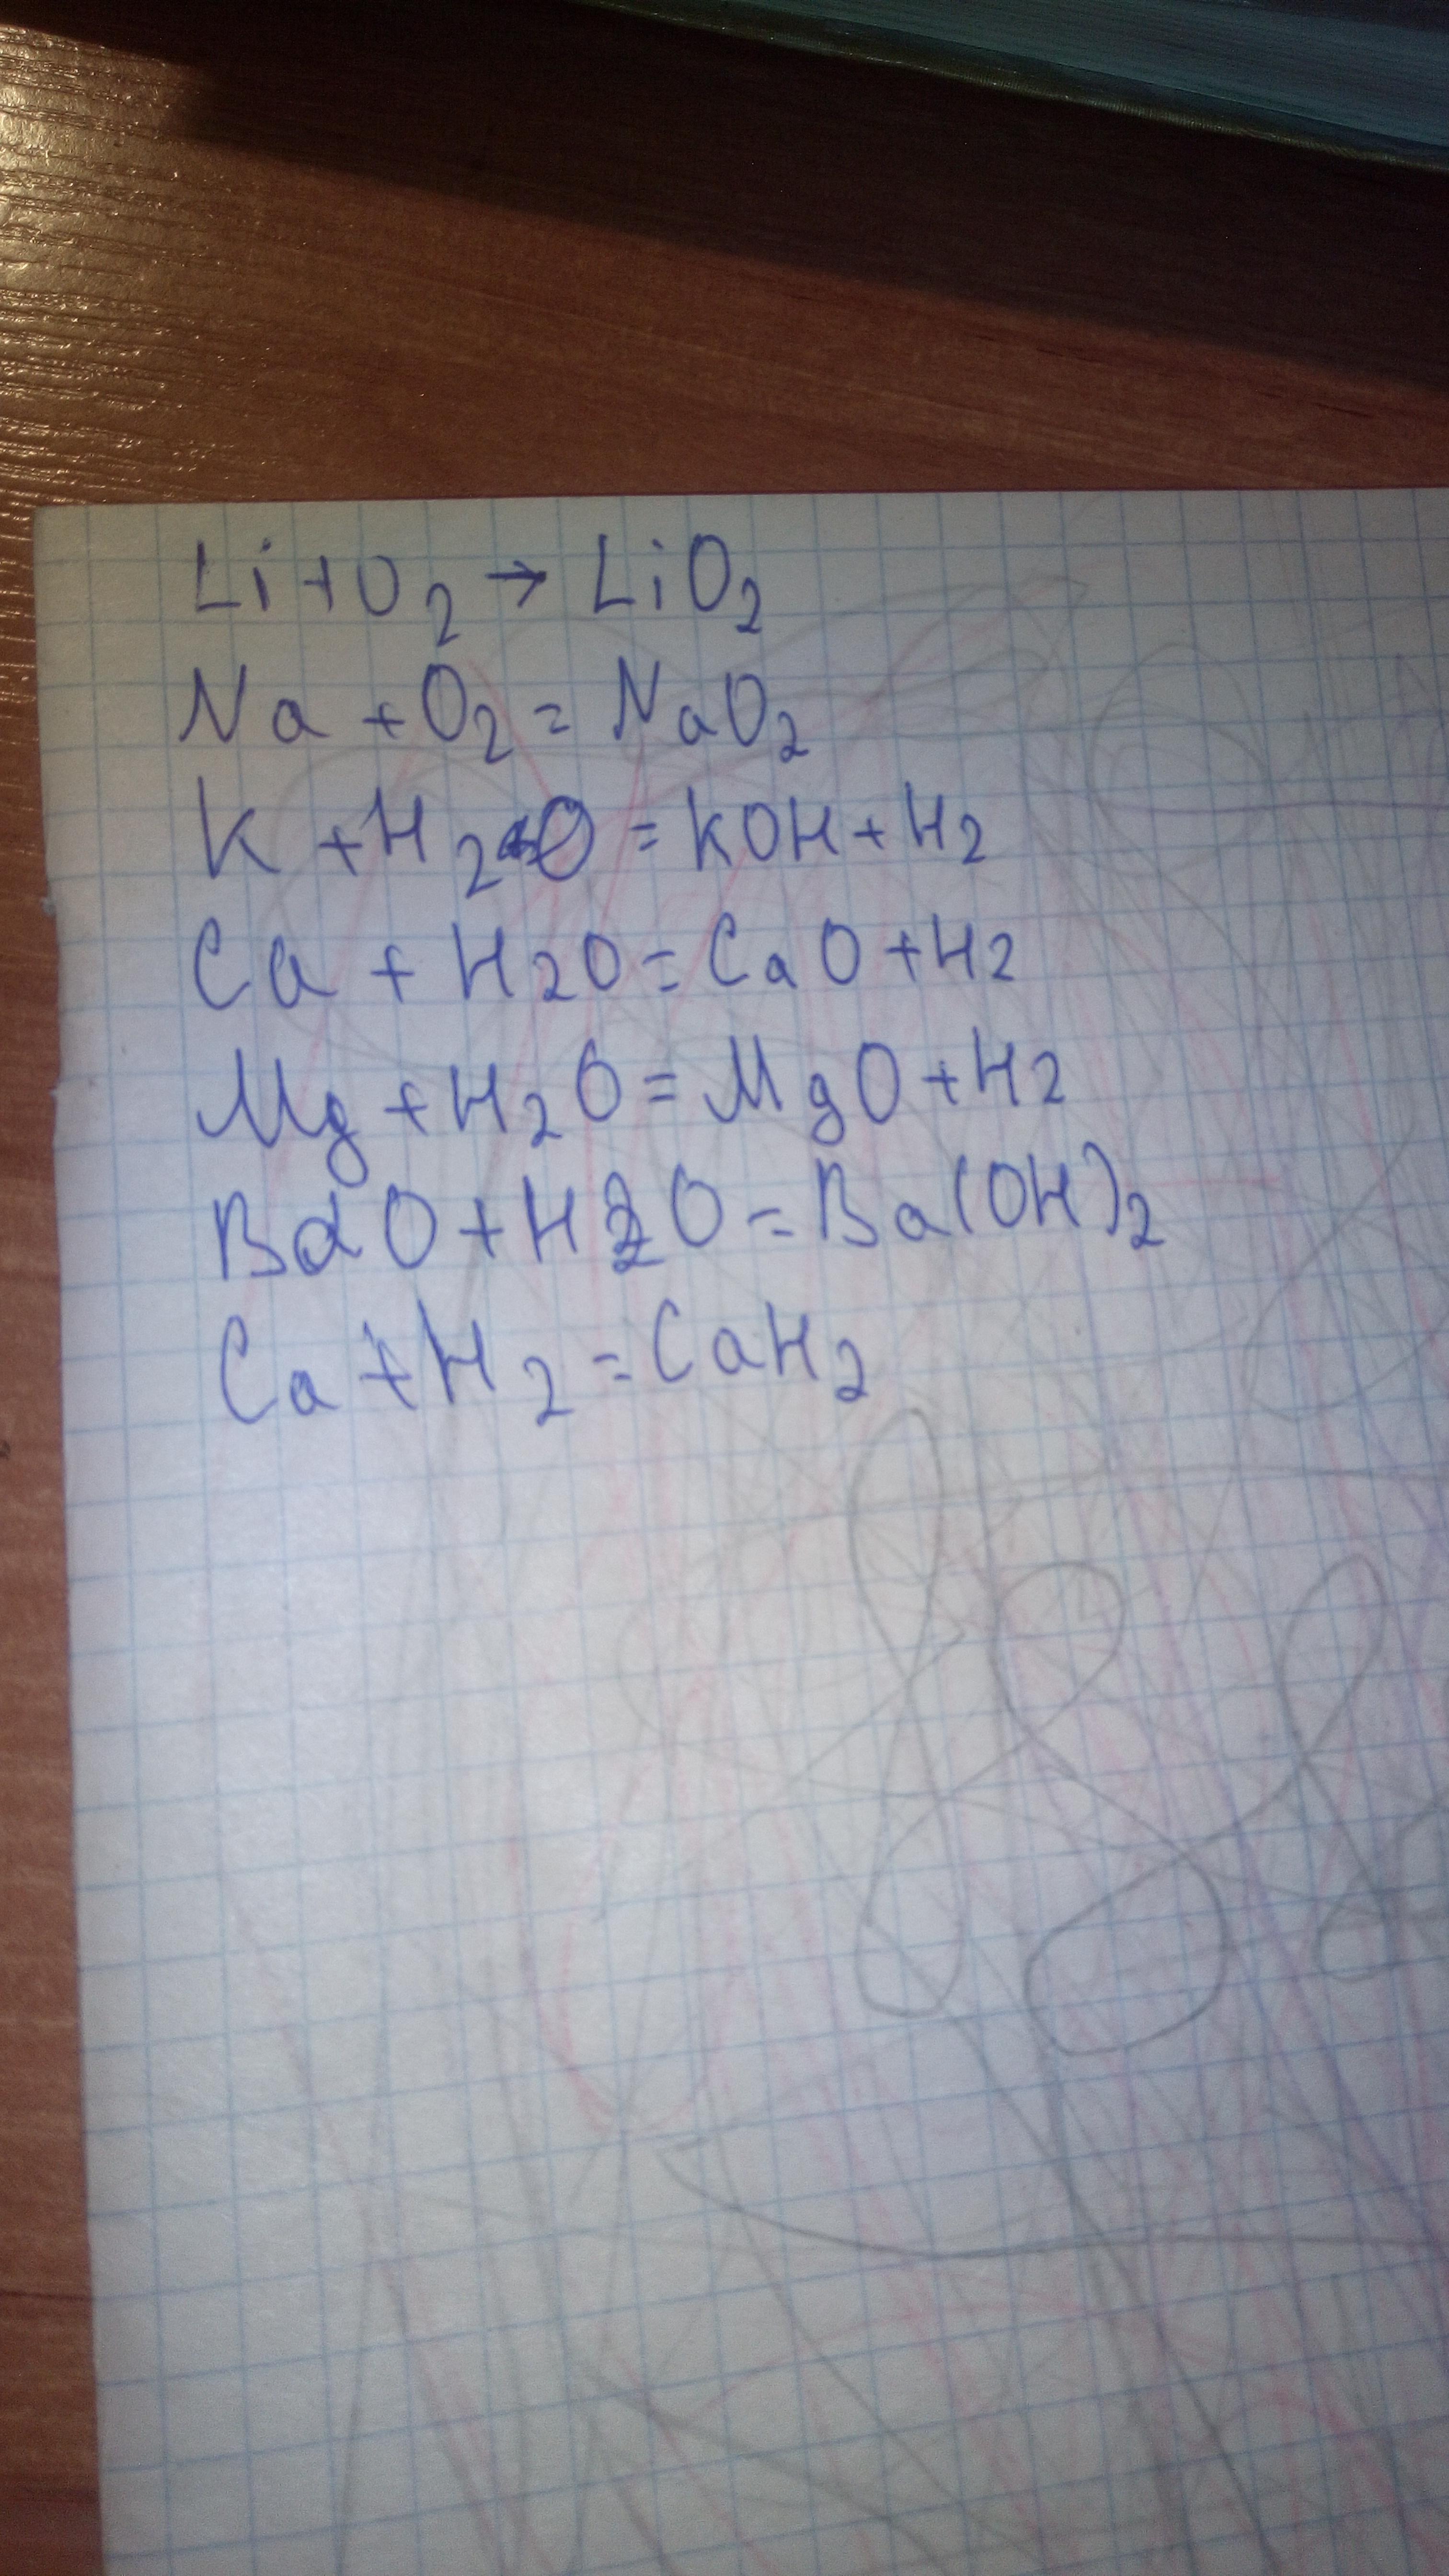 Li + O₂ → LiO₂
Na + O₂ = NaO₂
K + H₂O = KOH + H₂
Ca + H₂O = CaO + H₂
Mg + H₂O = MgO + H₂
BaO + H₂O = Ba(OH)₂
Ca + H₂ = CaH₂